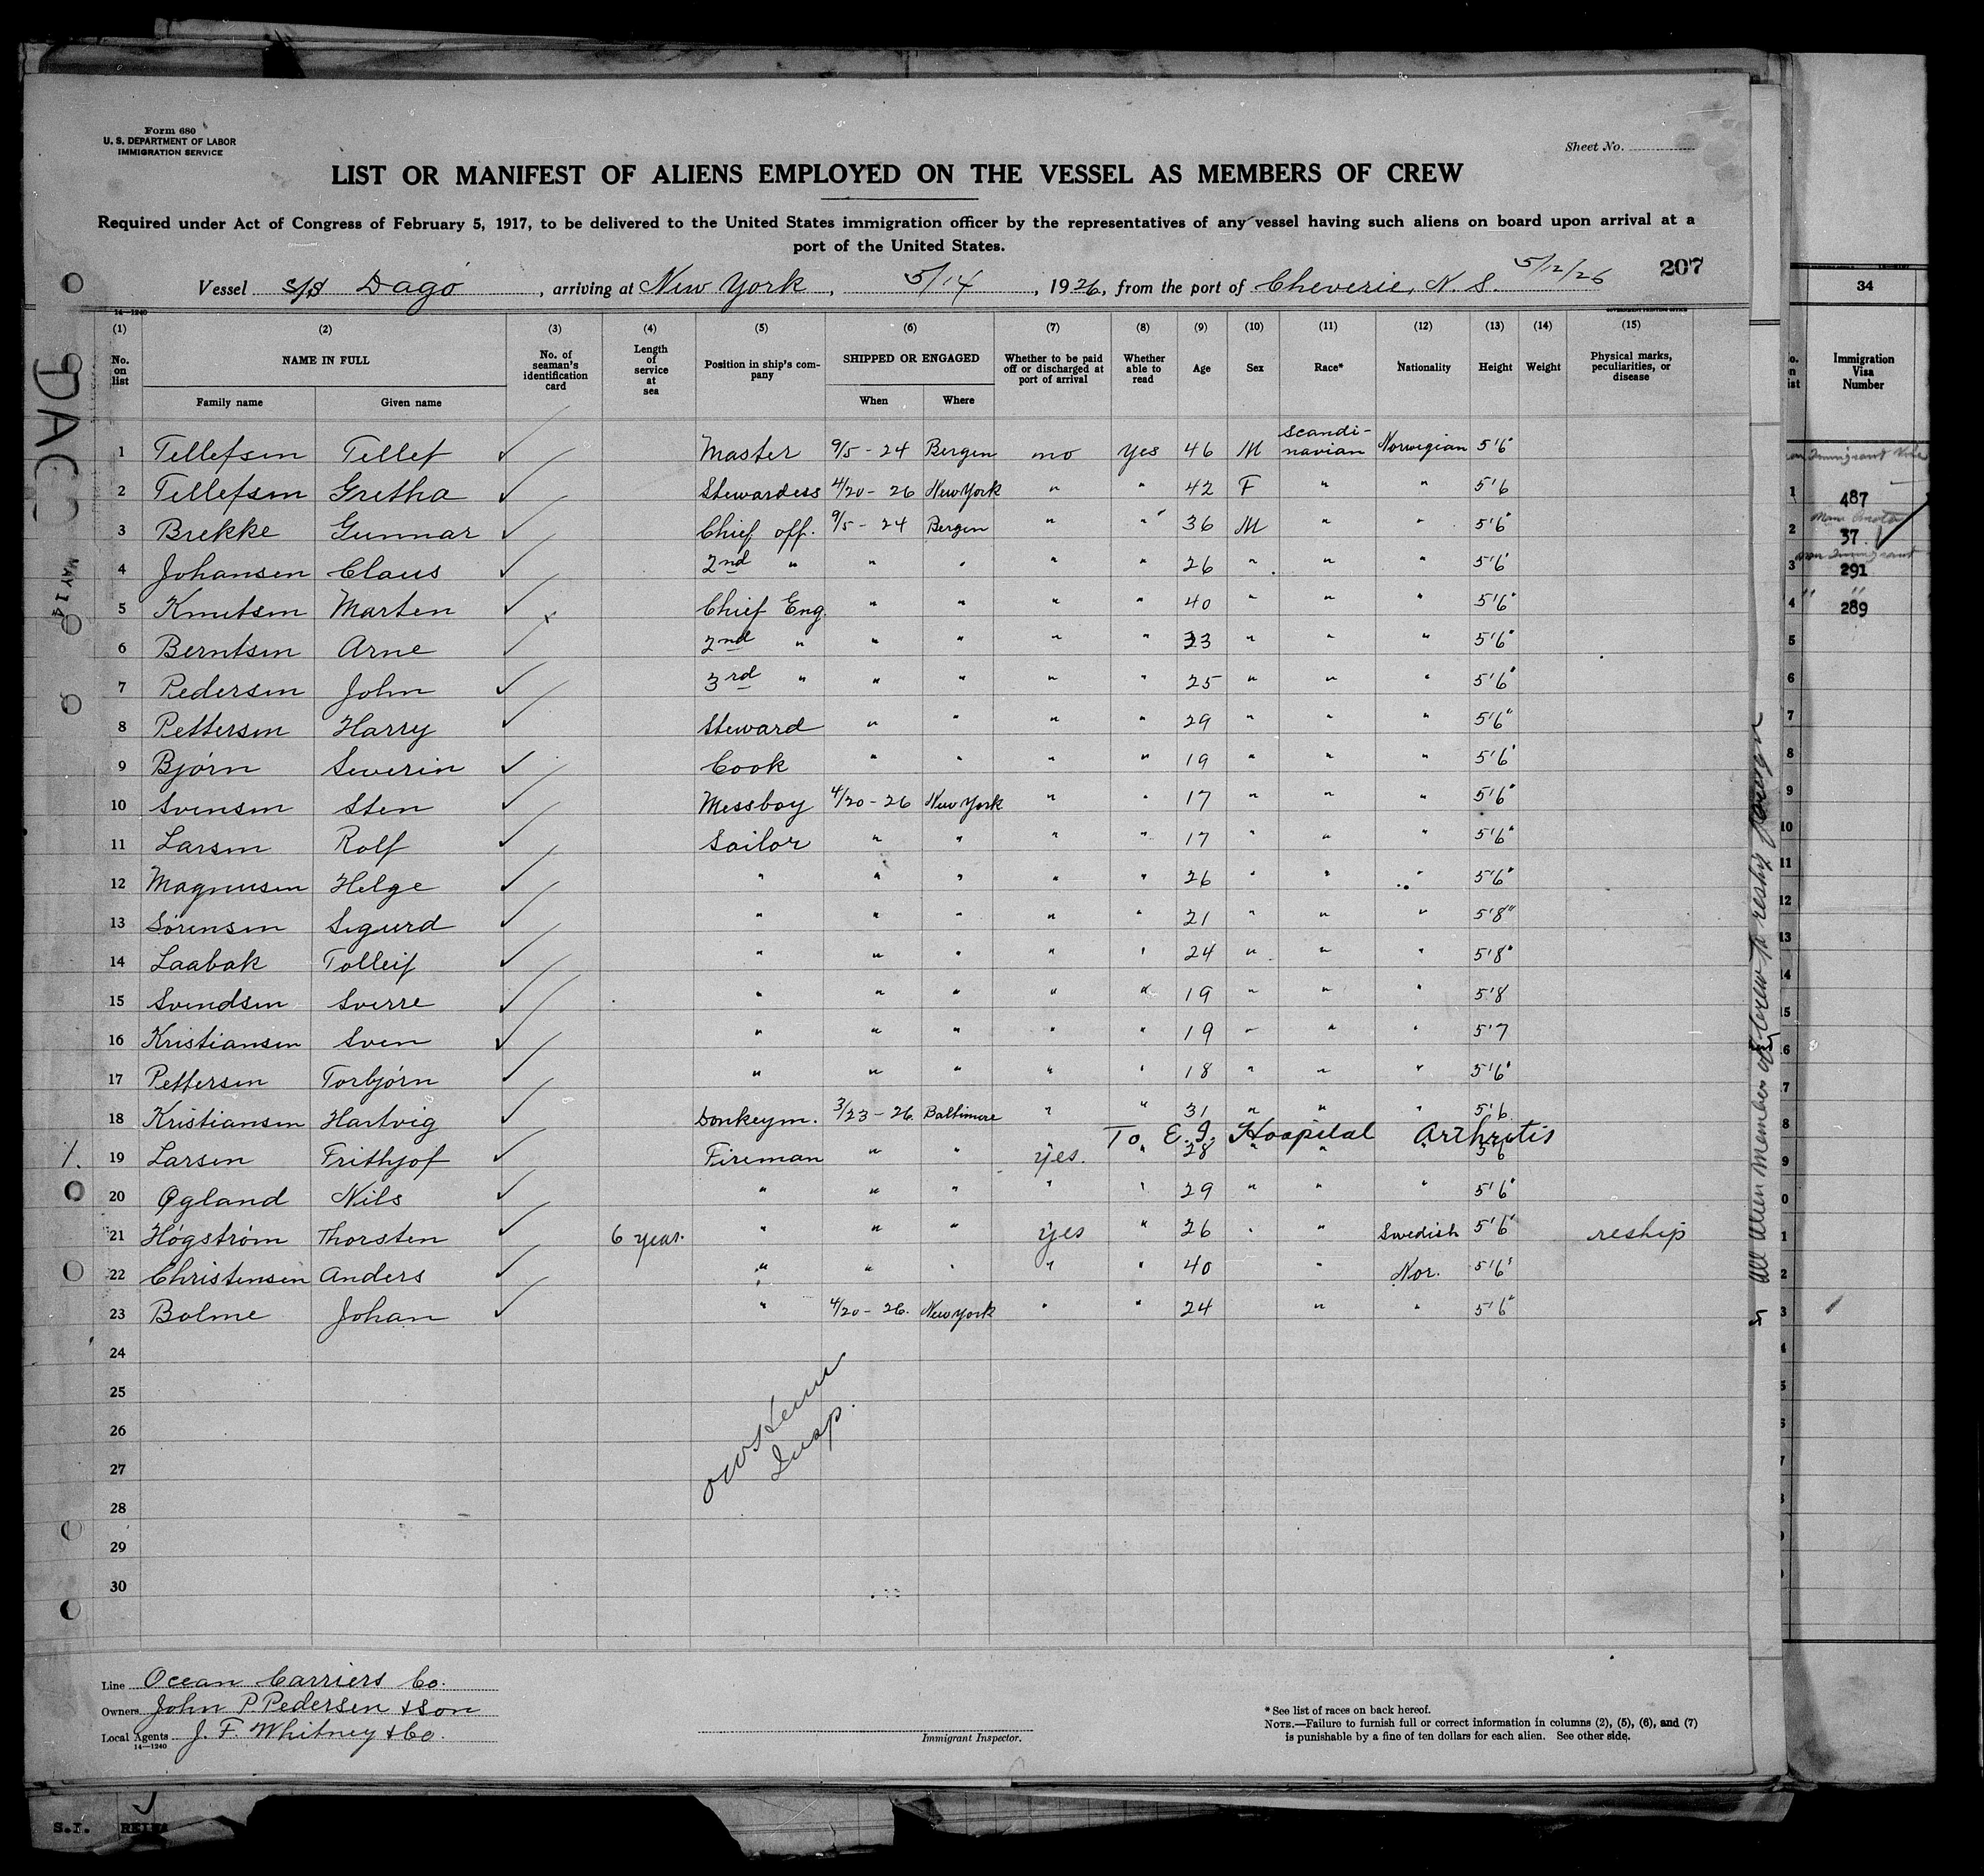 Form 680
U. S. DEPARTMENT OF LABOR
IMMIGRATION SERVICE
Sheet No.
LIST OR MANIFEST OF ALIENS EMPLOYED ON THE VESSEL AS MEMBERS OF CREW
Required under Act of Congress of February 5, 1917, to be delivered to the United States immigration officer by the representatives of any vessel having such aliens on board upon arrival at a
port of the United States.
207
Vessel S/S Dagö, arriving at New York, 5/14, 1926, from the port of Cheverie, N. S. 5/12/26
14—1240 GOVERNMENT PRINTING OFFICE
(1) (2) (3) (4) (5) (6) (7) (8) (9) (10) (11) (12) (13) (14) (15)
No. on list NAME IN FULL Family name Given name No. of seaman's identification card Length of service at sea Position in ship's company SHIPPED OR ENGAGED When Where Whether to be paid off or discharged at port of arrival Whether able to read Age Sex Race* Nationality Height Weight Physical marks, peculiarities, or disease
1 Tellefsen Tellef ✓ Master 9/5-24 Bergen no Yes 46 M Scandinavian Norwegian 5'6"
2 Tellefsen Gretha ✓ Stewardess 4/20-26 New York " " 42 F " " 5'6
3 Brekke Gunnar ✓ Chief off. 9/5-24 Bergen " " 36 M " " 5'6"
4 Johansen Claus ✓ 2nd " " " " " 26 " " " 5'6"
5 Knutsen Marten ✓ Chief Eng. " " " " 40 " " " 5'6"
6 Berntsen Arne ✓ 2nd " " " " " 23 " " " 5'6"
7 Pedersen John ✓ 3rd " " " " " 25 " " " 5'6"
8 Pettersen Harry ✓ Steward " " " " 29 " " " 5'6"
9 Bjørn Severin ✓ Cook " " " " 19 " " " 5'6"
10 Svensen Sten ✓ Messboy 4/20-26 New York " " 17 " " " 5'6"
11 Larsen Rolf ✓ Sailor " " " " 17 " " " 5'6"
12 Magnusen Helge ✓ " " " " " 26 " " " 5'6"
13 Sørensen Sigurd ✓ " " " " " 21 " " " 5'8"
14 Laabak Tolleif ✓ " " " " " 24 " " " 5'8"
15 Svendsen Sverre ✓ " " " " " 19 " " " 5'8
16 Kristiansen Sven ✓ " " " " " 19 " " " 5'7
17 Pettersen Torbjörn ✓ " " " " " 18 " " " 5'6"
18 Kristiansen Hartvig ✓ Donkeym. 3/23-26. Baltimore " " 31 " " " 5'6
To E. I. Hospital Arthritis
19 Larsen Frithjof ✓ Fireman " " Yes. " 28 " " " 5'6
20 Øgland Nils ✓ " " " " " 29 " " " 5'6"
21 Högström Thorsten ✓ 6 year. " " " yes " 26 " " Swedish 5'6" reship
22 Christensen Anders ✓ " " " " " 40 " Nor. 5'6"
23 Bolme Johan ✓ " 4/20-26. New York " " 24 " " 5'6"
24
25
26
27
28
29
30
Insp.
Line Ocean Carriers Co.
Owners John P. Pedersen & Son
Local Agents J. F. Whitney & Co.
14—1240
Immigrant Inspector.
* See list of races on back hereof.
NOTE.—Failure to furnish full or correct information in columns (2), (5), (6), and (7)
is punishable by a fine of ten dollars for each alien. See other side.
MAY 14
All alien members of crew to reship foreign
34
Immigration
Visa
Number
487
37
291
289
S.I.